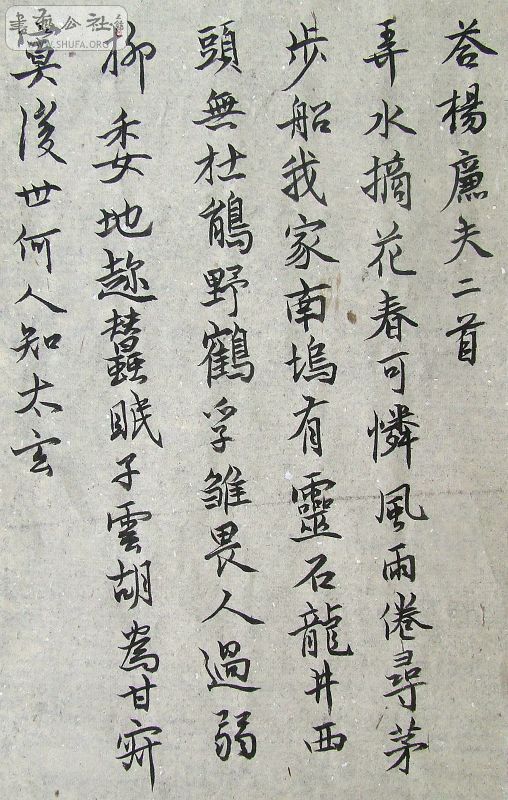 荅楊廉夫二首
弄水摘花春可憐風雨倦尋茅
步船我家南塢有靈石龍井西
頭無杜鵑野鶴孚雛畏人過弱
柳委地趂蠶眠子雲胡為甘寂
寞後世何人知太玄
書藝公社
WWW.SHUFA.ORG